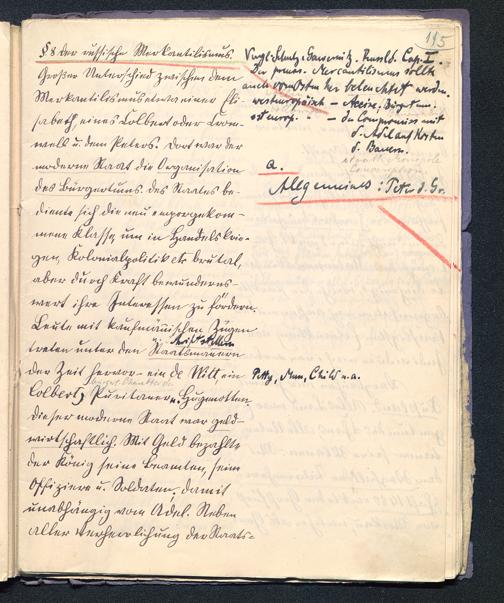 115
§ 8 der russische Merkantilismus.
Großer Unterschied zwischen dem
Merkantilismus etwa einer Eli-
sabeth eines Colbert oder Crom-
well u. dem Peters. Dort war der
moderne Staat die Organisation
des Bürgertums. des Staates be-
diente sich die neu emporgekom-
mene Klasse, um in Handelskrie-
gen, Kolonialpolitik etc brutal,
aber durch Kraft bewunderns-
wert ihre Interessen zu fördern.
Leute mit kaufmännischen Zügen
treten unter den Staatsmännern
Schriftstellern
der Zeit hervor - ein de Witt, ein
Colbert, Puritaner u. Hugenotten.
dieser moderne Staat war geld-
wirtschaftlich. Mit Geld bezahlte
der König seine Beamten, seine
Offiziere u. Soldaten, damit
unabhängig vom Adel. Neben
aller Verherrlichung der Staats-
Vergl. Schulze-Gaevernitz. Russld. Cap. I.
Der Mercantilismus sollte
auch beleuchtet werden.
westeuropäisch -
osteurop. " - der Compromiss mit
d. Adel auf Kosten
d. Bauern.
a.
Allgemeines: Peter d. Gr.
Petty, Mun, Child u. a.